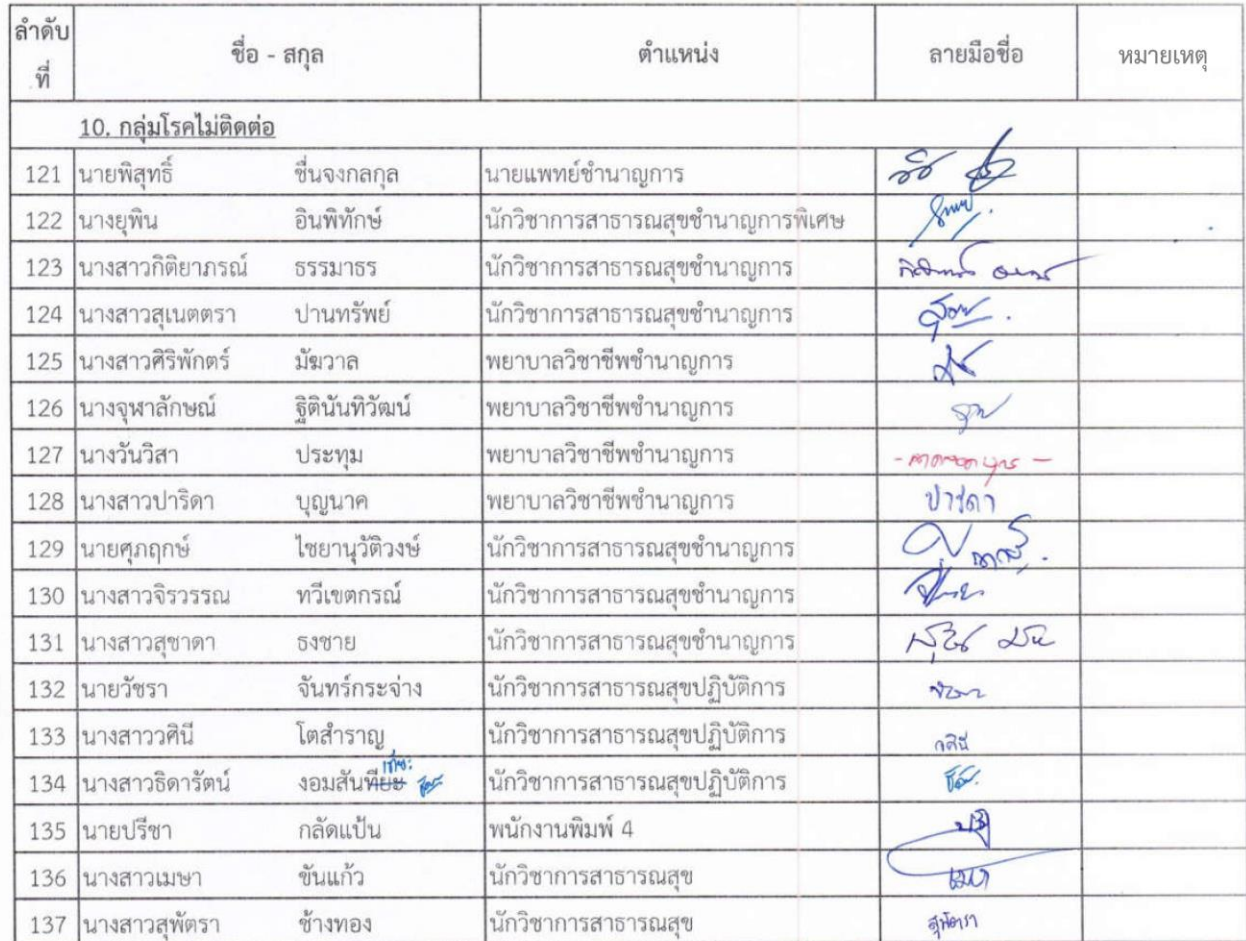 ลำดับที่ ชื่อ - สกุล ตำแหน่ง ลายมือชื่อ หมายเหตุ
10. กลุ่มโรคไม่ติดต่อ
121 นายพิสุทธิ์ ชื่นจงกลกุล นายแพทย์ชำนาญการ
122 นางยุพิน อินพิทักษ์ นักวิชาการสาธารณสุขชำนาญการพิเศษ
123 นางสาวกิติยาภรณ์ ธรรมาธร นักวิชาการสาธารณสุขชำนาญการ
124 นางสาวสุเนตตรา ปานทรัพย์ นักวิชาการสาธารณสุขชำนาญการ
125 นางสาวศิริพักตร์ มัฆวาล พยาบาลวิชาชีพชำนาญการ
126 นางจุฬาลักษณ์ ฐิตินันทิวัฒน์ พยาบาลวิชาชีพชำนาญการ
127 นางวันวิสา ประทุม พยาบาลวิชาชีพชำนาญการ
128 นางสาวปาริดา บุญนาค พยาบาลวิชาชีพชำนาญการ ปาริดา
129 นายศุภฤกษ์ ไชยานุวัติวงษ์ นักวิชาการสาธารณสุขชำนาญการ
130 นางสาวจิรวรรณ ทวีเขตกรณ์ นักวิชาการสาธารณสุขชำนาญการ
131 นางสาวสุชาดา ธงชาย นักวิชาการสาธารณสุขชำนาญการ
132 นายวัชรา จันทร์กระจ่าง นักวิชาการสาธารณสุขปฏิบัติการ
133 นางสาววศินี โตสำราญ นักวิชาการสาธารณสุขปฏิบัติการ วศินี
134 นางสาวธิดารัตน์ งอมสันทียะ นักวิชาการสาธารณสุขปฏิบัติการ
135 นายปรีชา กลัดแป้น พนักงานพิมพ์ 4
136 นางสาวเมษา ขันแก้ว นักวิชาการสาธารณสุข เมษา
137 นางสาวสุพัตรา ช้างทอง นักวิชาการสาธารณสุข สุพัตรา